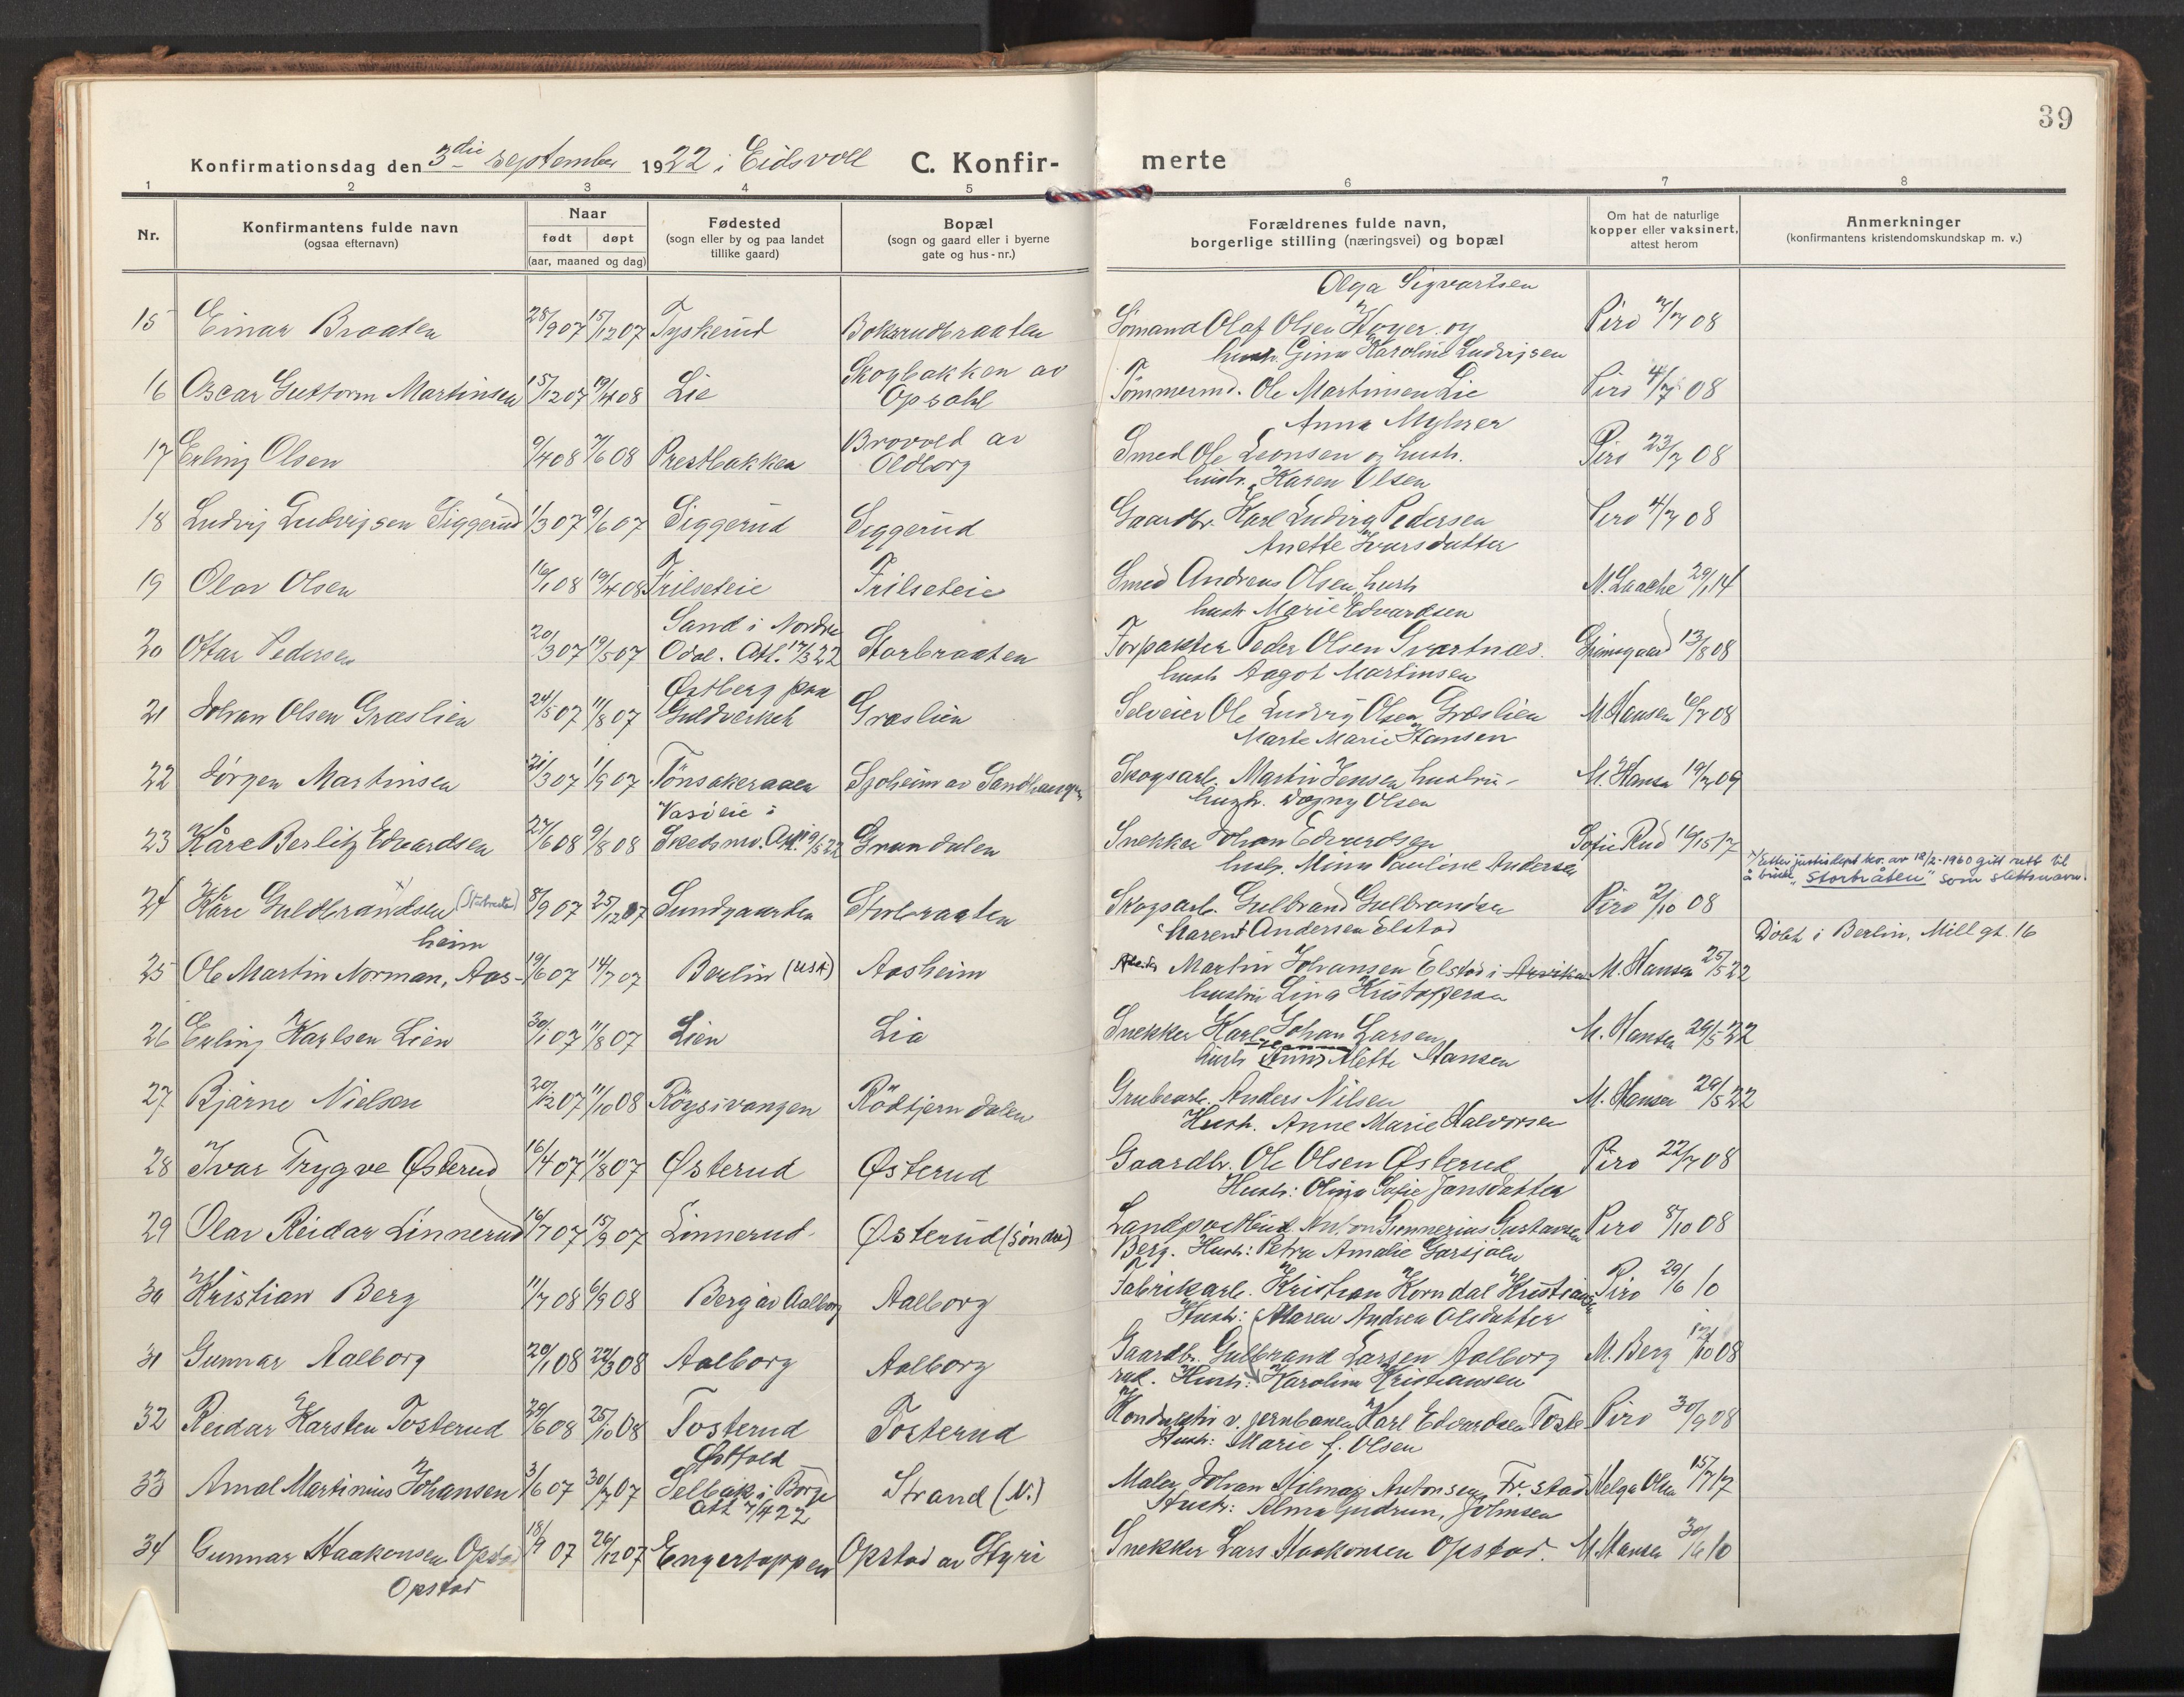 39
Konfirmationsdag den 3die september 1922 i Eidsvoll C. Konfir- merte
1 2 3 4 5 6 7 8
Nr.
Konfirmantens fulde navn
(ogsaa efternavn)
Naar
født døpt
(aar, maaned og dag)
Fødested
(sogn eller by og paa landet
tillike gaard)
Bopæl
(sogn og gaard eller i byerne
gate og hus-nr.)
Forældrenes fulde navn,
borgerlige stilling (næringsvei) og bopæl
Om hat de naturlige
kopper eller vaksinert,
attest herom
Anmerkninger
(konfirmantens kristendomskundskap m. v.)
Olga Sigvartsen
15 Einar Braaten 28/9 07 15/12 07 Tyskerud Bokerudbraaten Sømand Olaf Olsen Høyer og Piro 08
hustr. Gina Karoline Ludvigsen
16 Oscar Guttorm Martinsen 15/12 07 19/4 08 Lie Skogbakken av Opsahl Tømmermd. Ole Martinsen Lie Piro 4/7 08
Anna Myhrer
17 Erling Olsen 9/4 08 7/6 08 Prestbakken Brovold av Oldborg Smed Ole Leonsen og hustr. Piro 23/7 08
hustr. Karen Olsen
18 Ludvig Ludvigsen Siggerud 1/3 07 9/6 07 Siggerud Siggerud Gaardbr. Karl Ludvig Pedersen Piro 4/7 08
Anette Ivarsdatter
19 Olav Olsen 16/1 08 19/4 08 Trilseteie Trilseteie Smed Andreas Olsen, hustr M. Laache 29/1 14
hustr Marie Edvardsen
20 Ottar Pedersen 20/3 07 19/5 07 Sand i Nordre Odal. Att. 17/3 22 Storbraaten Forpakter Peder Olsen Svartnæs. Grimsgaard 13/8 08
hustr Aagot Martinsen
21 Johan Olsen Græslien 24/5 07 11/8 07 Østberg paa Guldverket Græslien Selveier Ole Ludvig Olsen Græslien M. Hansen 6/7 08
Marte Marie Hansen
22 Jørgen Martinsen 21/3 07 1/9 07 Tønsakeraaen Sjoheim av Sandhaugen Skogsarb. Martin Jensen hustru - M. Hansen 19/7 09
hustr. Dagny Olsen
23 Kåre Berlitz Edvardsen 27/6 08 9/8 08 Vasøeie i Skedsmo. Att. 9/5 22 Grundalen Snekker Johan Edvardsen Sofie Rud 16/15 17
hustr. Mina Pauline Andersen
x) Etter justisdept. bev. av 12/2-1960 gitt rett til
å bruke "Storbråten" som slektsnavn.
24 Kåre Guldbrandsen x) (Storbraaten) 8/9 07 25/12 07 Sundgaarden Storbraaten Skogsarb. Gulbrand Gulbrandsen Piro 2/10 08
Maren Andersen Elstad
Døbt i Berlin, Mill gt. 16
25 Ole Martin Norman, Aasheim 19/6 07 14/7 07 Berlin (USA) Aasheim Martin Johansen Elstad i M. Hansen 25/5 22
hustru Lina Kristoffersen
26 Erling Karlsen Lien 30/1 07 11/8 07 Lien Lia Snekker Karl Johan Larsen, M. Hansen 29/5 22
hustr Anne Mette Hansen
27 Bjarne Nielsen 20/12 07 11/10 08 Røysivangen Rødtjerndalen Grubearb. Anders Nilsen M. Hansen 29/5 22
Hustr. Anne Marie Halvorsen
28 Ivar Trygve Østerud 16/4 07 11/8 07 Østerud Østerud Gaardbr. Ole Olsen Østerud Piro 22/7 08
Hustr: Olina Sofie Jansdatter
29 Olav Reidar Linnerud 16/7 07 15/9 07 Linnerud Østerud (søndre) Landpostbud. Anton Gunnerius Gustavsen Piro 8/10 08
Berg. Hustr: Petra Amalie Garsjøln
30 Kristian Berg 11/7 08 6/9 08 Berg av Aalborg Aalborg Fabrikarb. Kristian Korndal Kristiansen Piro 29/6 10
Hustr: Maren Andrea Olsdatter
31 Gunnar Aalborg 20/1 08 22/3 08 Aalborg Aalborg Gaardbr. Gulbrand Larsen Aalborg M. Berg 12/10 08
rud. Hustr: Karoline Kristiansen
32 Reidar Karsten Tosterud 29/6 08 25/10 08 Tosterud Tosterud Konduktør v. jernbanen Karl Edvardsen Toste- Piro 30/9 08
Hustr: Marie f. Olsen
33 Arnal Martinius Johansen 3/6 07 30/7 07 Østfold Selbak i Borge Att 7/4 22 Strand (N.) Maler Johan Hilmar Antonsen Fr.stad Helga Olsen 15/7 17
Hustr: Alma Gudrun, Johnsen
34 Gunnar Haakonsen Opstad 18/9 07 26/12 07 Engertoppen Opstad av Styri Snekker Lars Haakonsen Opstad. M. Hansen 30/6 10
Opstad